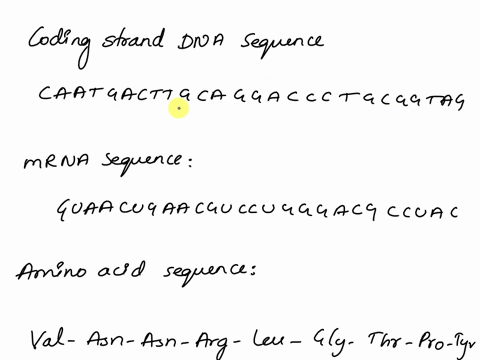 Coding strand DNA sequence
CAATGACTTGCAGGACCCTGCGGTAG
mRNA sequence:
GUAACUGAACGUCCUGGGACGCCUAC
Amino acid sequence:
Val-Asn-Asn-Arg-Leu-Gly-Thr-Pro-Tyr